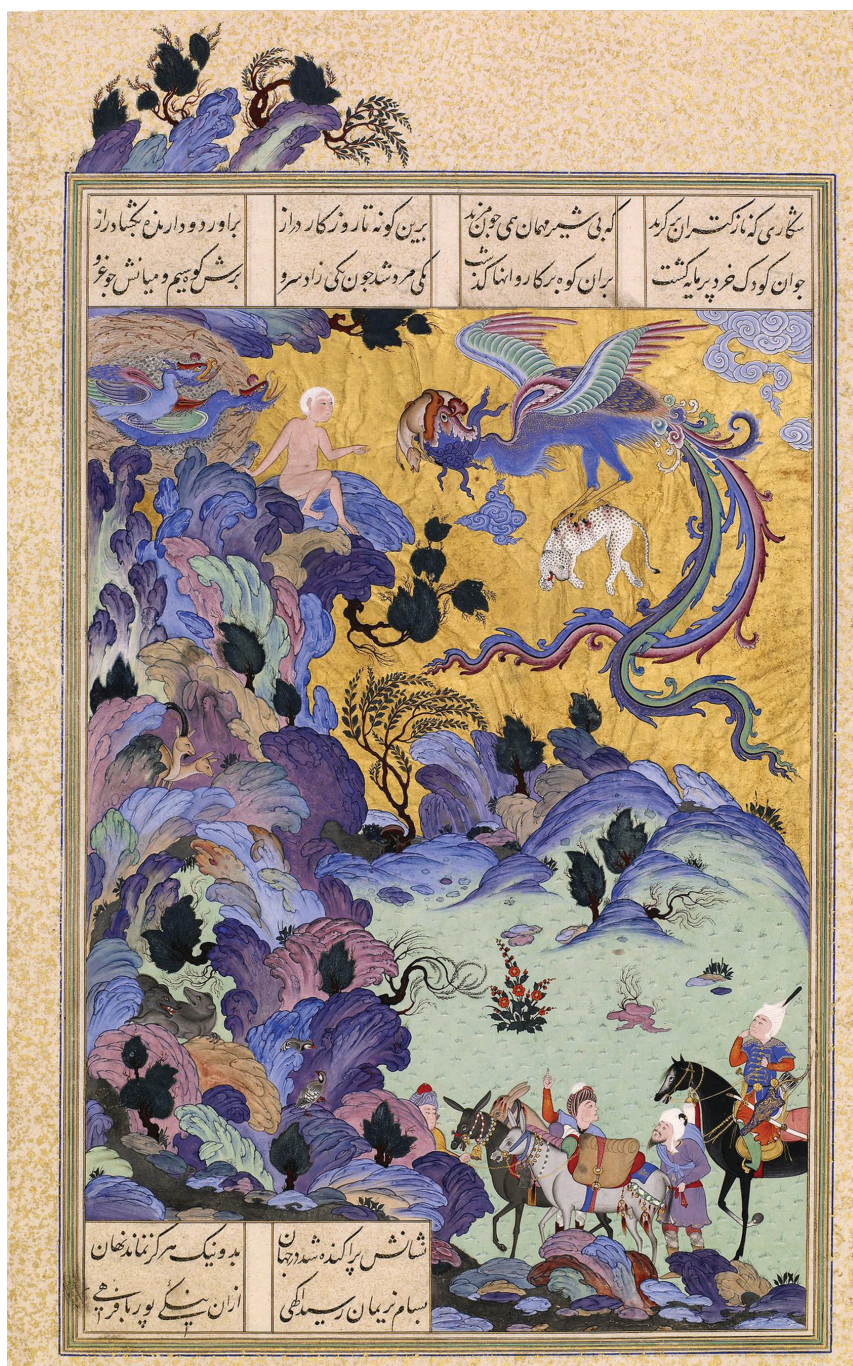 شکاری که نازکتر آن برگزید که بی شیر مهمان همی خون مزید برین گونه تا روزگار دراز براورد و دارنده بکشاد راز
جوان کودک خرد پرمایه گشت بران کوه بر کاروانها گذشت یکی مرد شد چون یکی زاد سرو برش کوه سیم و میانش چو غرو
نشانش پراکنده شد در جهان بد و نیک هرگز نماند نهان
بسام نریمان رسید آگهی ازان نیک پی پور با فرهی